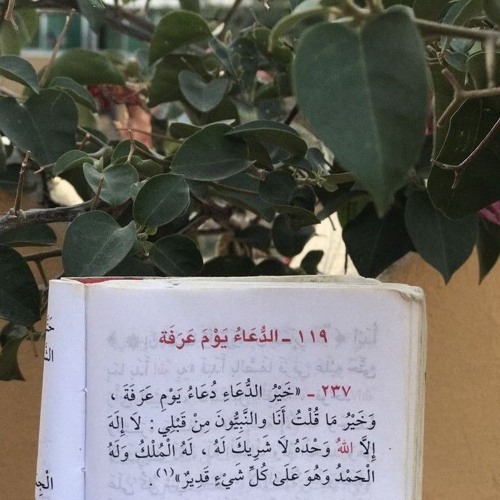 ١١٩ ـ الدُّعَاءُ يَوْمَ عَرَفَةَ
٢٣٧ ـ «خَيْرُ الدُّعَاءِ دُعَاءُ يَوْمِ عَرَفَةَ ،
وَخَيْرُ مَا قُلْتُ أَنَا والنَّبِيُّونَ مِنْ قَبْلِي : لَا إِلَهَ
إِلَّا اللهُ وَحْدَهُ لَا شَرِيكَ لَهُ ، لَهُ الْمُلْكُ وَلَهُ
الْحَمْدُ وَهُوَ عَلَىٰ كُلِّ شَيْءٍ قَدِيرٌ»(١).